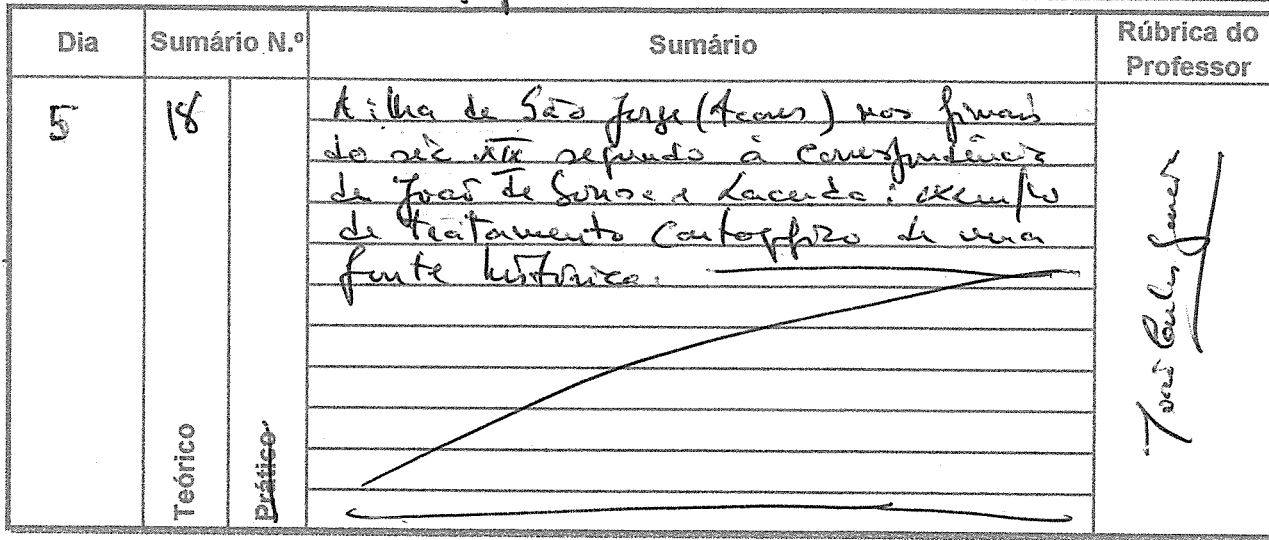 Dia Sumário N.º Sumário Rúbrica do Professor
5 18
A ilha de São Jorge (Açores) nos finais
do séc XIX segundo a correspondência
de João de Sousa e Lacerda: exemplo
de tratamento cartográfico de uma
fonte histórica.
Teórico
Prático
João Carlos